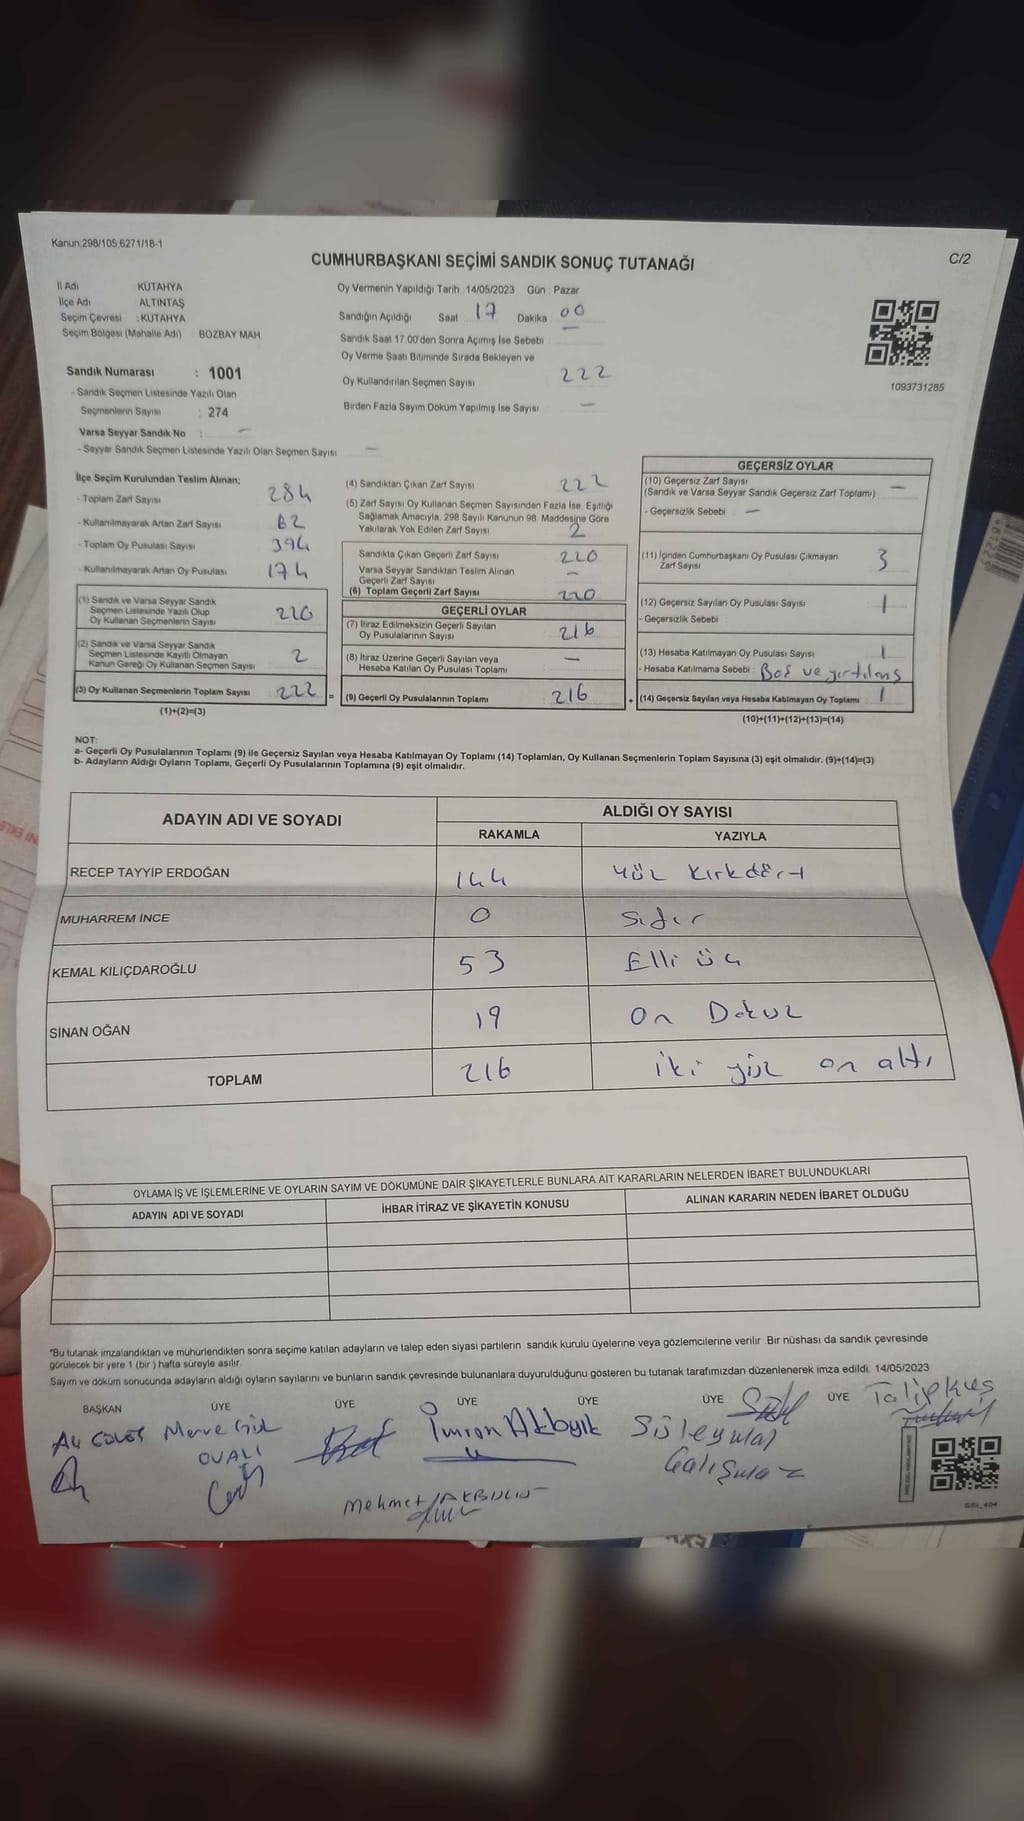 Kanun:298/105,6271/18-1
C/2
CUMHURBAŞKANI SEÇİMİ SANDIK SONUÇ TUTANAĞI
İl Adı KÜTAHYA
İlçe Adı ALTINTAŞ
Seçim Çevresi : KÜTAHYA
Seçim Bölgesi (Mahalle Adı) : BOZBAY MAH
Sandık Numarası : 1001
- Sandık Seçmen Listesinde Yazılı Olan
Seçmenlerin Sayısı : 274
Varsa Seyyar Sandık No : —
- Seyyar Sandık Seçmen Listesinde Yazılı Olan Seçmen Sayısı —
Oy Vermenin Yapıldığı Tarih :14/05/2023 Gün : Pazar
Sandığın Açıldığı Saat 17 Dakika 00
Sandık Saat 17:00'den Sonra Açımış İse Sebebi —
Oy Verme Saati Bitiminde Sırada Bekleyen ve
Oy Kullandırılan Seçmen Sayısı 222
Birden Fazla Sayım Döküm Yapılmış İse Sayısı —
1093731285
İlçe Seçim Kurulundan Teslim Alınan;
- Toplam Zarf Sayısı 284
- Kullanılmayarak Artan Zarf Sayısı 62
- Toplam Oy Pusulası Sayısı 394
- Kullanılmayarak Artan Oy Pusulası 174
(1) Sandık ve Varsa Seyyar Sandık
Seçmen Listesinde Yazılı Olup
Oy Kullanan Seçmenlerin Sayısı 220
(2) Sandık ve Varsa Seyyar Sandık
Seçmen Listesinde Kayıtlı Olmayan
Kanun Gereği Oy Kullanan Seçmen Sayısı 2
(3) Oy Kullanan Seçmenlerin Toplam Sayısı 222 =
(1)+(2)=(3)
(4) Sandıktan Çıkan Zarf Sayısı 222
(5) Zarf Sayısı Oy Kullanan Seçmen Sayısından Fazla İse, Eşitliği
Sağlamak Amacıyla, 298 Sayılı Kanunun 98. Maddesine Göre
Yakılarak Yok Edilen Zarf Sayısı 2
Sandıkta Çıkan Geçerli Zarf Sayısı 220
Varsa Seyyar Sandıktan Teslim Alınan
Geçerli Zarf Sayısı —
(6) Toplam Geçerli Zarf Sayısı 220
GEÇERLİ OYLAR
(7) İtiraz Edilmeksizin Geçerli Sayılan
Oy Pusulalarının Sayısı 216
(8) İtiraz Üzerine Geçerli Sayılan veya
Hesaba Katılan Oy Pusulası Toplamı —
(9) Geçerli Oy Pusulalarının Toplamı 216 +
GEÇERSİZ OYLAR
(10) Geçersiz Zarf Sayısı —
(Sandık ve Varsa Seyyar Sandık Geçersiz Zarf Toplamı)
- Geçersizlik Sebebi : —
(11) İçinden Cumhurbaşkanı Oy Pusulası Çıkmayan
Zarf Sayısı 3
(12) Geçersiz Sayılan Oy Pusulası Sayısı 1
- Geçersizlik Sebebi :
(13) Hesaba Katılmayan Oy Pusulası Sayısı 1
- Hesaba Katılmama Sebebi : Boş ve yırtılmış
(14) Geçersiz Sayılan veya Hesaba Katılmayan Oy Toplamı 1
(10)+(11)+(12)+(13)=(14)
NOT:
a- Geçerli Oy Pusulalarının Toplamı (9) ile Geçersiz Sayılan veya Hesaba Katılmayan Oy Toplamı (14) Toplamları, Oy Kullanan Seçmenlerin Toplam Sayısına (3) eşit olmalıdır. (9)+(14)=(3)
b- Adayların Aldığı Oyların Toplamı, Geçerli Oy Pusulalarının Toplamına (9) eşit olmalıdır.
ADAYIN ADI VE SOYADI ALDIĞI OY SAYISI
RAKAMLA YAZIYLA
RECEP TAYYİP ERDOĞAN 144 Yüz Kırkdört
MUHARREM İNCE 0 Sıfır
KEMAL KILIÇDAROĞLU 53 Elli üç
SİNAN OĞAN 19 On Dokuz
TOPLAM 216 iki yüz on altı
OYLAMA İŞ VE İŞLEMLERİNE VE OYLARIN SAYIM VE DÖKÜMÜNE DAİR ŞİKAYETLERLE BUNLARA AİT KARARLARIN NELERDEN İBARET BULUNDUKLARI
ADAYIN ADI VE SOYADI İHBAR İTİRAZ VE ŞİKAYETİN KONUSU ALINAN KARARIN NEDEN İBARET OLDUĞU
*Bu tutanak imzalandıktan ve mühürlendikten sonra seçime katılan adayların ve talep eden siyasi partilerin sandık kurulu üyelerine veya gözlemcilerine verilir. Bir nüshası da sandık çevresinde
görülecek bir yere 1 (bir ) hafta süreyle asılır.
Sayım ve döküm sonucunda adayların aldığı oyların sayılarını ve bunların sandık çevresinde bulunanlara duyurulduğunu gösteren bu tutanak tarafımızdan düzenlenerek imza edildi. 14/05/2023
BAŞKAN ÜYE ÜYE ÜYE ÜYE ÜYE ÜYE
Merve Gül İmran Akbıyık Süleyman Talip Kuş
OVALI Çalışmaz
Mehmet AKBULUT